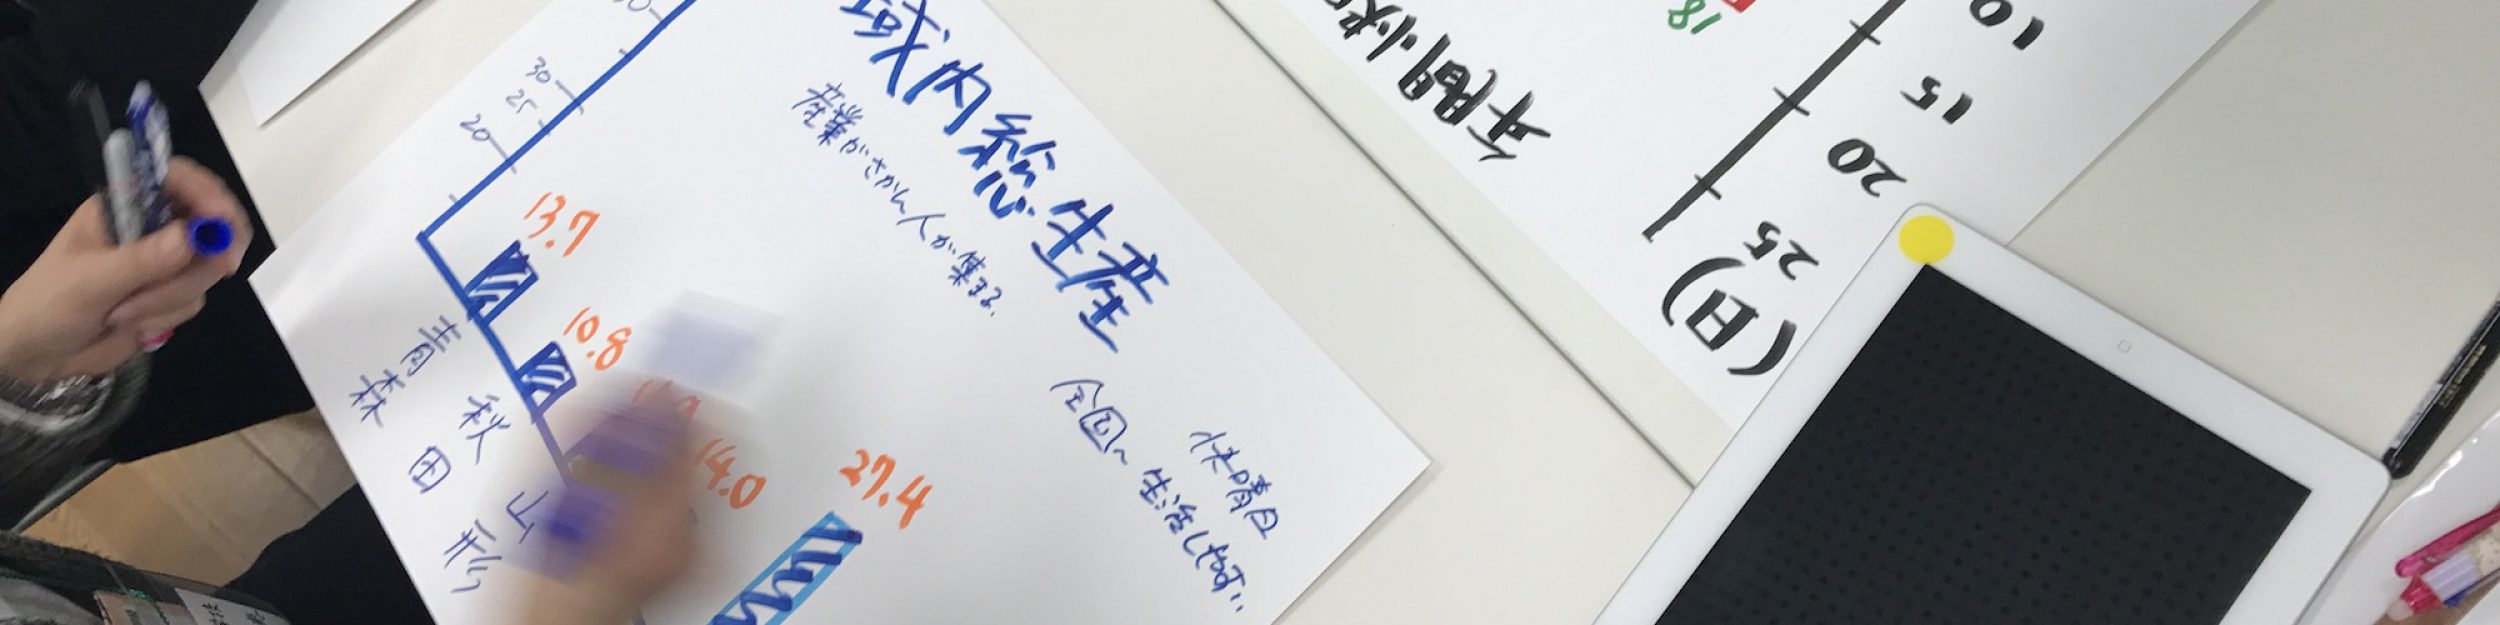 域内総生産
産業がさかん人が集まる。
30
25
20
13.7
10.8
14.0
27.4
青森
秋田
山形
快晴日
全国〜生活しやすい
年間
18
10
15
20
25
(日)